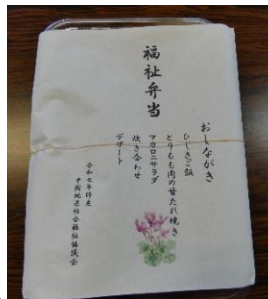 福祉弁当
おしながき
ひじきご飯
とりもも肉の甘だれ焼き
マカロニサラダ
焼き合わせ
デザート
令和七年師走
中関地区社会福祉協議会